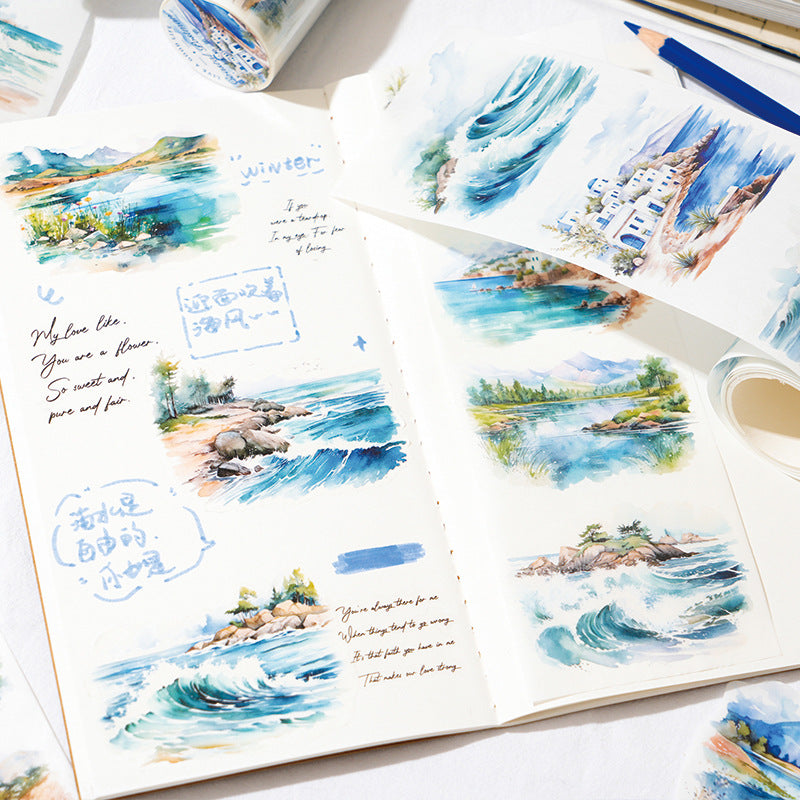 "winter"
If you
were a teardrop
In my eye. For fear
of losing
迎面吹着
海风~~
My love like.
You are a flower.
So sweet and.
pure and fair.
海水是
自由的.
你也是
You're always there for me
When things tend to go wrong
It's that faith you have in me
That makes our love strong